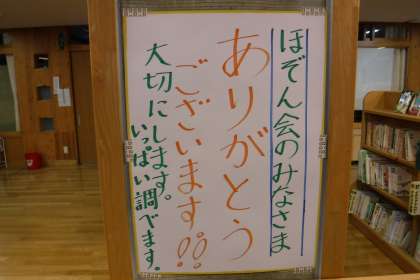 ほぞん会のみなさま
ありがとう
ございます!!
大切にします。
いっぱい調べます。